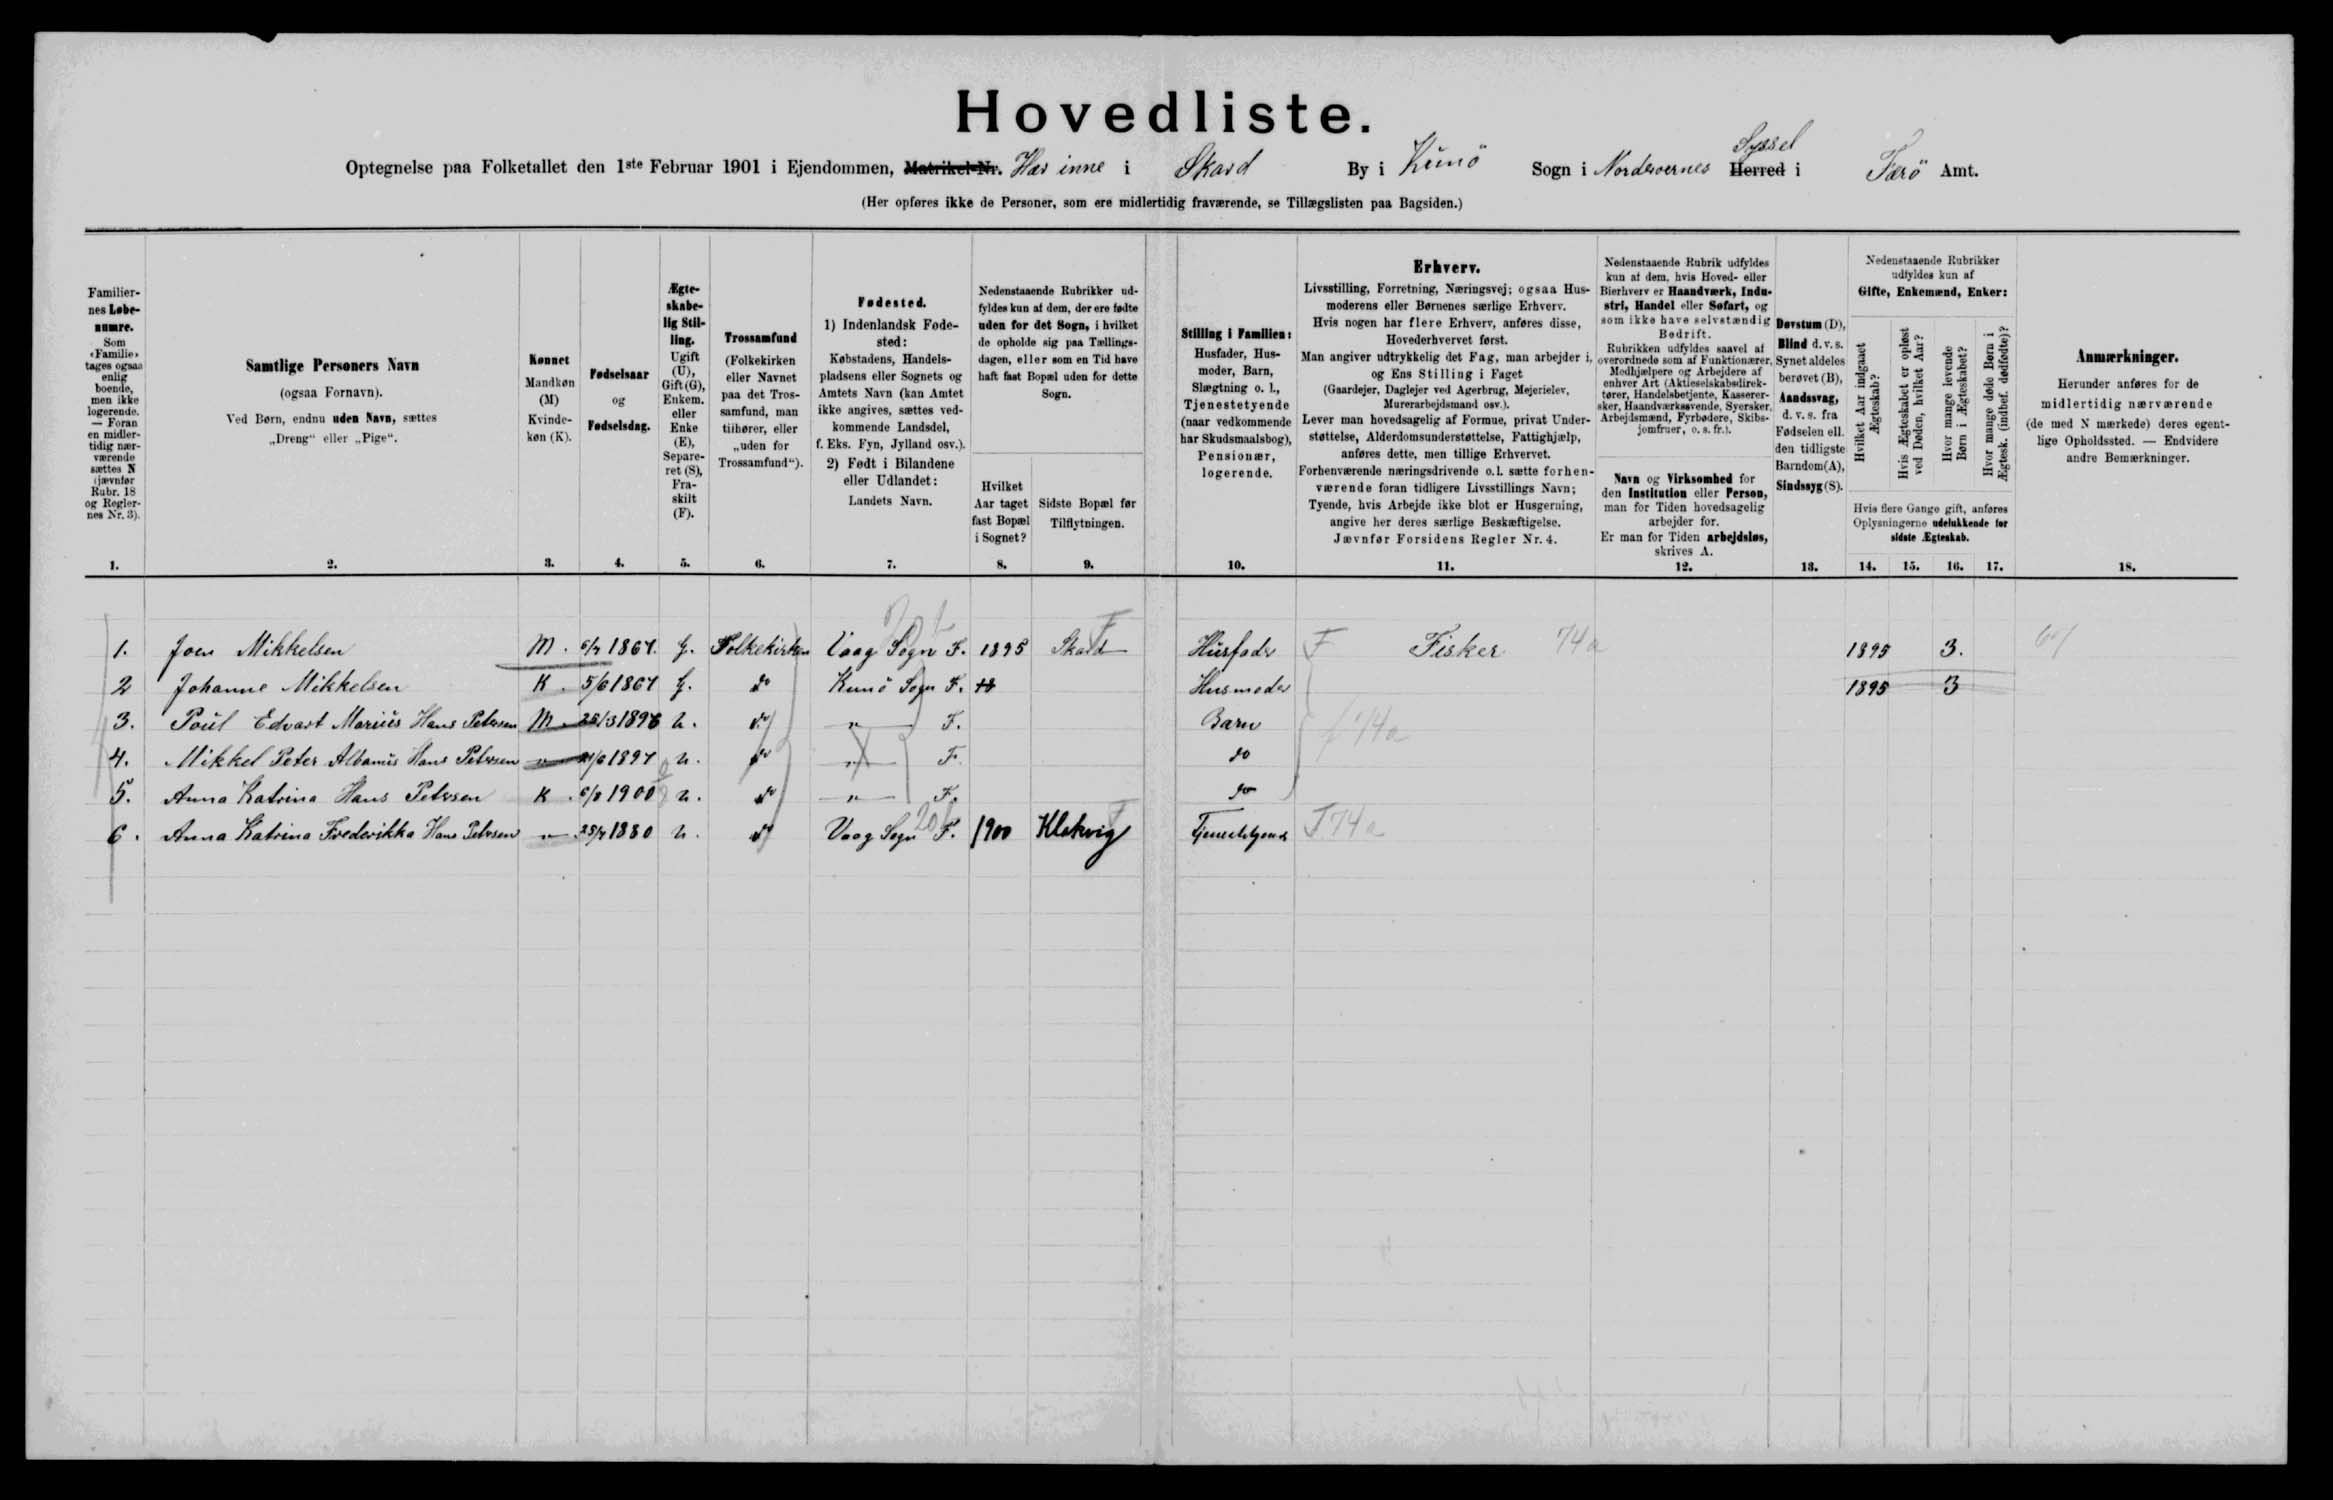 Hovedliste.
Syssel
Optegnelse paa Folketallet den 1ste Februar 1901 i Ejendommen, Matrikel-Nr. Har inne i Skard By i Kunö Sogn i Norderoernes Herred i Færö Amt.
(Her opføres ikke de Personer, som ere midlertidig fraværende, se Tillægslisten paa Bagsiden.)
Familier-
nes Løbe-
numre.
Som
«Familie»
tages ogsaa
enlig
boende,
men ikke
logerende.
— Foran
en midler-
tidig nær-
værende
sættes N
(jævnfør
Rubr. 18
og Regler-
nes Nr. 3).
1.
Samtlige Personers Navn
(ogsaa Fornavn).
Ved Børn, endnu uden Navn, sættes
„Dreng“ eller „Pige“.
2.
Kønnet
Mandkøn
(M)
Kvinde-
køn (K).
3.
Fødselsaar
og
Fødselsdag.
4.
Ægte-
skabe-
lig Stil-
ling.
Ugift
(U),
Gift (G),
Enkem.
eller
Enke
(E),
Separe-
ret (S),
Fra-
skilt
(F).
5.
Trossamfund
(Folkekirken
eller Navnet
paa det Tros-
samfund, man
tilhører, eller
„uden for
Trossamfund“).
6.
Fødested.
1) Indenlandsk Føde-
sted:
Købstadens, Handels-
pladsens eller Sognets og
Amtets Navn (kan Amtet
ikke angives, sættes ved-
kommende Landsdel,
f. Eks. Fyn, Jylland osv.).
2) Født i Bilandene
eller Udlandet:
Landets Navn.
7.
Nedenstaaende Rubrikker ud-
fyldes kun af dem, der ere fødte
uden for det Sogn, i hvilket
de opholde sig paa Tællings-
dagen, eller som en Tid have
haft fast Bopæl uden for dette
Sogn.
Hvilket
Aar taget
fast Bopæl
i Sognet?
8.
Sidste Bopæl før
Tilflytningen.
9.
Stilling i Familien:
Husfader, Hus-
moder, Barn,
Slægtning o. l.,
Tjenestetyende
(naar vedkommende
har Skudsmaalsbog),
Pensionær,
logerende.
10.
Erhverv.
Livsstilling, Forretning, Næringsvej; ogsaa Hus-
moderens eller Børnenes særlige Erhverv.
Hvis nogen har flere Erhverv, anføres disse,
Hovederhvervet først.
Man angiver udtrykkelig det Fag, man arbejder i,
og Ens Stilling i Faget
(Gaardejer, Daglejer ved Agerbrug, Mejerielev,
Murerarbejdsmand osv.).
Lever man hovedsagelig af Formue, privat Under-
støttelse, Alderdomsunderstøttelse, Fattighjælp,
anføres dette, men tillige Erhvervet.
Forhenværende næringsdrivende o.l. sætte forhen-
værende foran tidligere Livsstillings Navn;
Tyende, hvis Arbejde ikke blot er Husgerning,
angive her deres særlige Beskæftigelse.
Jævnfør Forsidens Regler Nr. 4.
11.
Nedenstaaende Rubrik udfyldes
kun af dem, hvis Hoved- eller
Bierhverv er Haandværk, Indu-
stri, Handel eller Søfart, og
som ikke have selvstændig
Bedrift.
Rubrikken udfyldes saavel af
overordnede som af Funktionærer,
Medhjælpere og Arbejdere af
enhver Art (Aktieselskabsdirek-
tører, Handelsbetjente, Kasserer-
sker, Haandværkssvende, Syersker,
Arbejdsmænd, Fyrbødere, Skibs-
jomfruer, o. s. fr.).
Navn og Virksomhed for
den Institution eller Person,
man for Tiden hovedsagelig
arbejder for.
Er man for Tiden arbejdsløs,
skrives A.
12.
Døvstum (D),
Blind d. v. s.
Synet aldeles
berøvet (B),
Aandssvag,
d. v. s. fra
Fødselen ell.
den tidligste
Barndom (A),
Sindssyg (S).
13.
Nedenstaaende Rubrikker
udfyldes kun af
Gifte, Enkemænd, Enker:
Hvilket Aar indgaaet
Ægteskab?
Hvis Ægteskabet er opløst
ved Døden, hvilket Aar?
Hvor mange levende
Børn i Ægteskabet?
Hvor mange døde Børn i
Ægtesk. (indbef. dødfødte)?
Hvis flere Gange gift, anføres
Oplysningerne udelukkende for
sidste Ægteskab.
14. 15. 16. 17.
Anmærkninger.
Herunder anføres for de
midlertidig nærværende
(de med N mærkede) deres egent-
lige Opholdssted. — Endvidere
andre Bemærkninger.
18.
1. Joen Mikkelsen M. 6/7 1867. G. Folkekirken Vaag Sogn F. 1895 Skard F Husfader F Fisker 74a 1895 3.
2 Johanne Mikkelsen K. 5/6 1867 G. do Kunö Sogn F. Husmoder 1895 3
3. Poul Edvart Marius Hans Petersen M 25/3 1896 U. do " F. Barn 74a
4. Mikkel Peter Albanus Hans Petersen " 21/6 1897 U. do " F. do
5. Anna Katrina Hans Petersen K. 6/8 1900 U. do " F. do
6. Anna Katrina Frederikka Hans Petersen " 25/7 1880 U. do Vaag Sogn F. 1900 Klakvig F Tjenestetyende F 74a